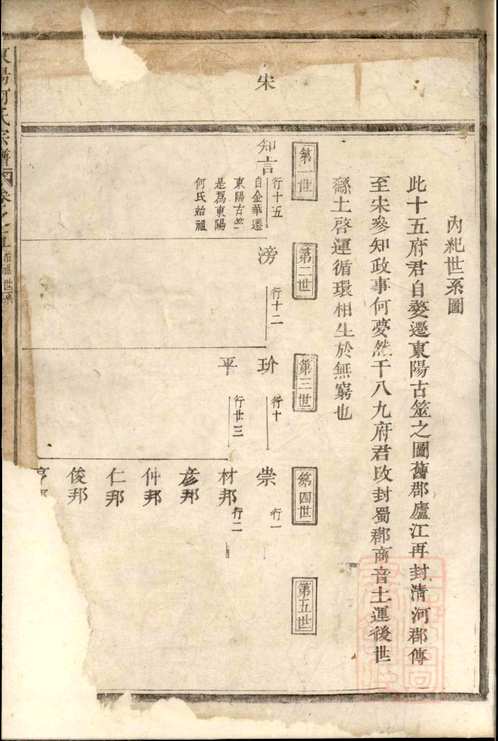 內紀世系圖
此十五府君自婺遷東陽古筮之圖舊郡廬江再封清河郡傳
至宋參知政事何夢然千八九府君改封蜀郡商音土運後世
繇土啓運循環相生於無窮也
宋
第一世
第二世
第三世
第四世
第五世
知言
行十五
自金華遷
東陽古筮
是爲東陽
何氏始祖
滂
行十二
玠
行十
平
行廿三
崇
行一
材邦
行二
彥邦
仲邦
仁邦
俊邦
亨
陽何氏宗譜